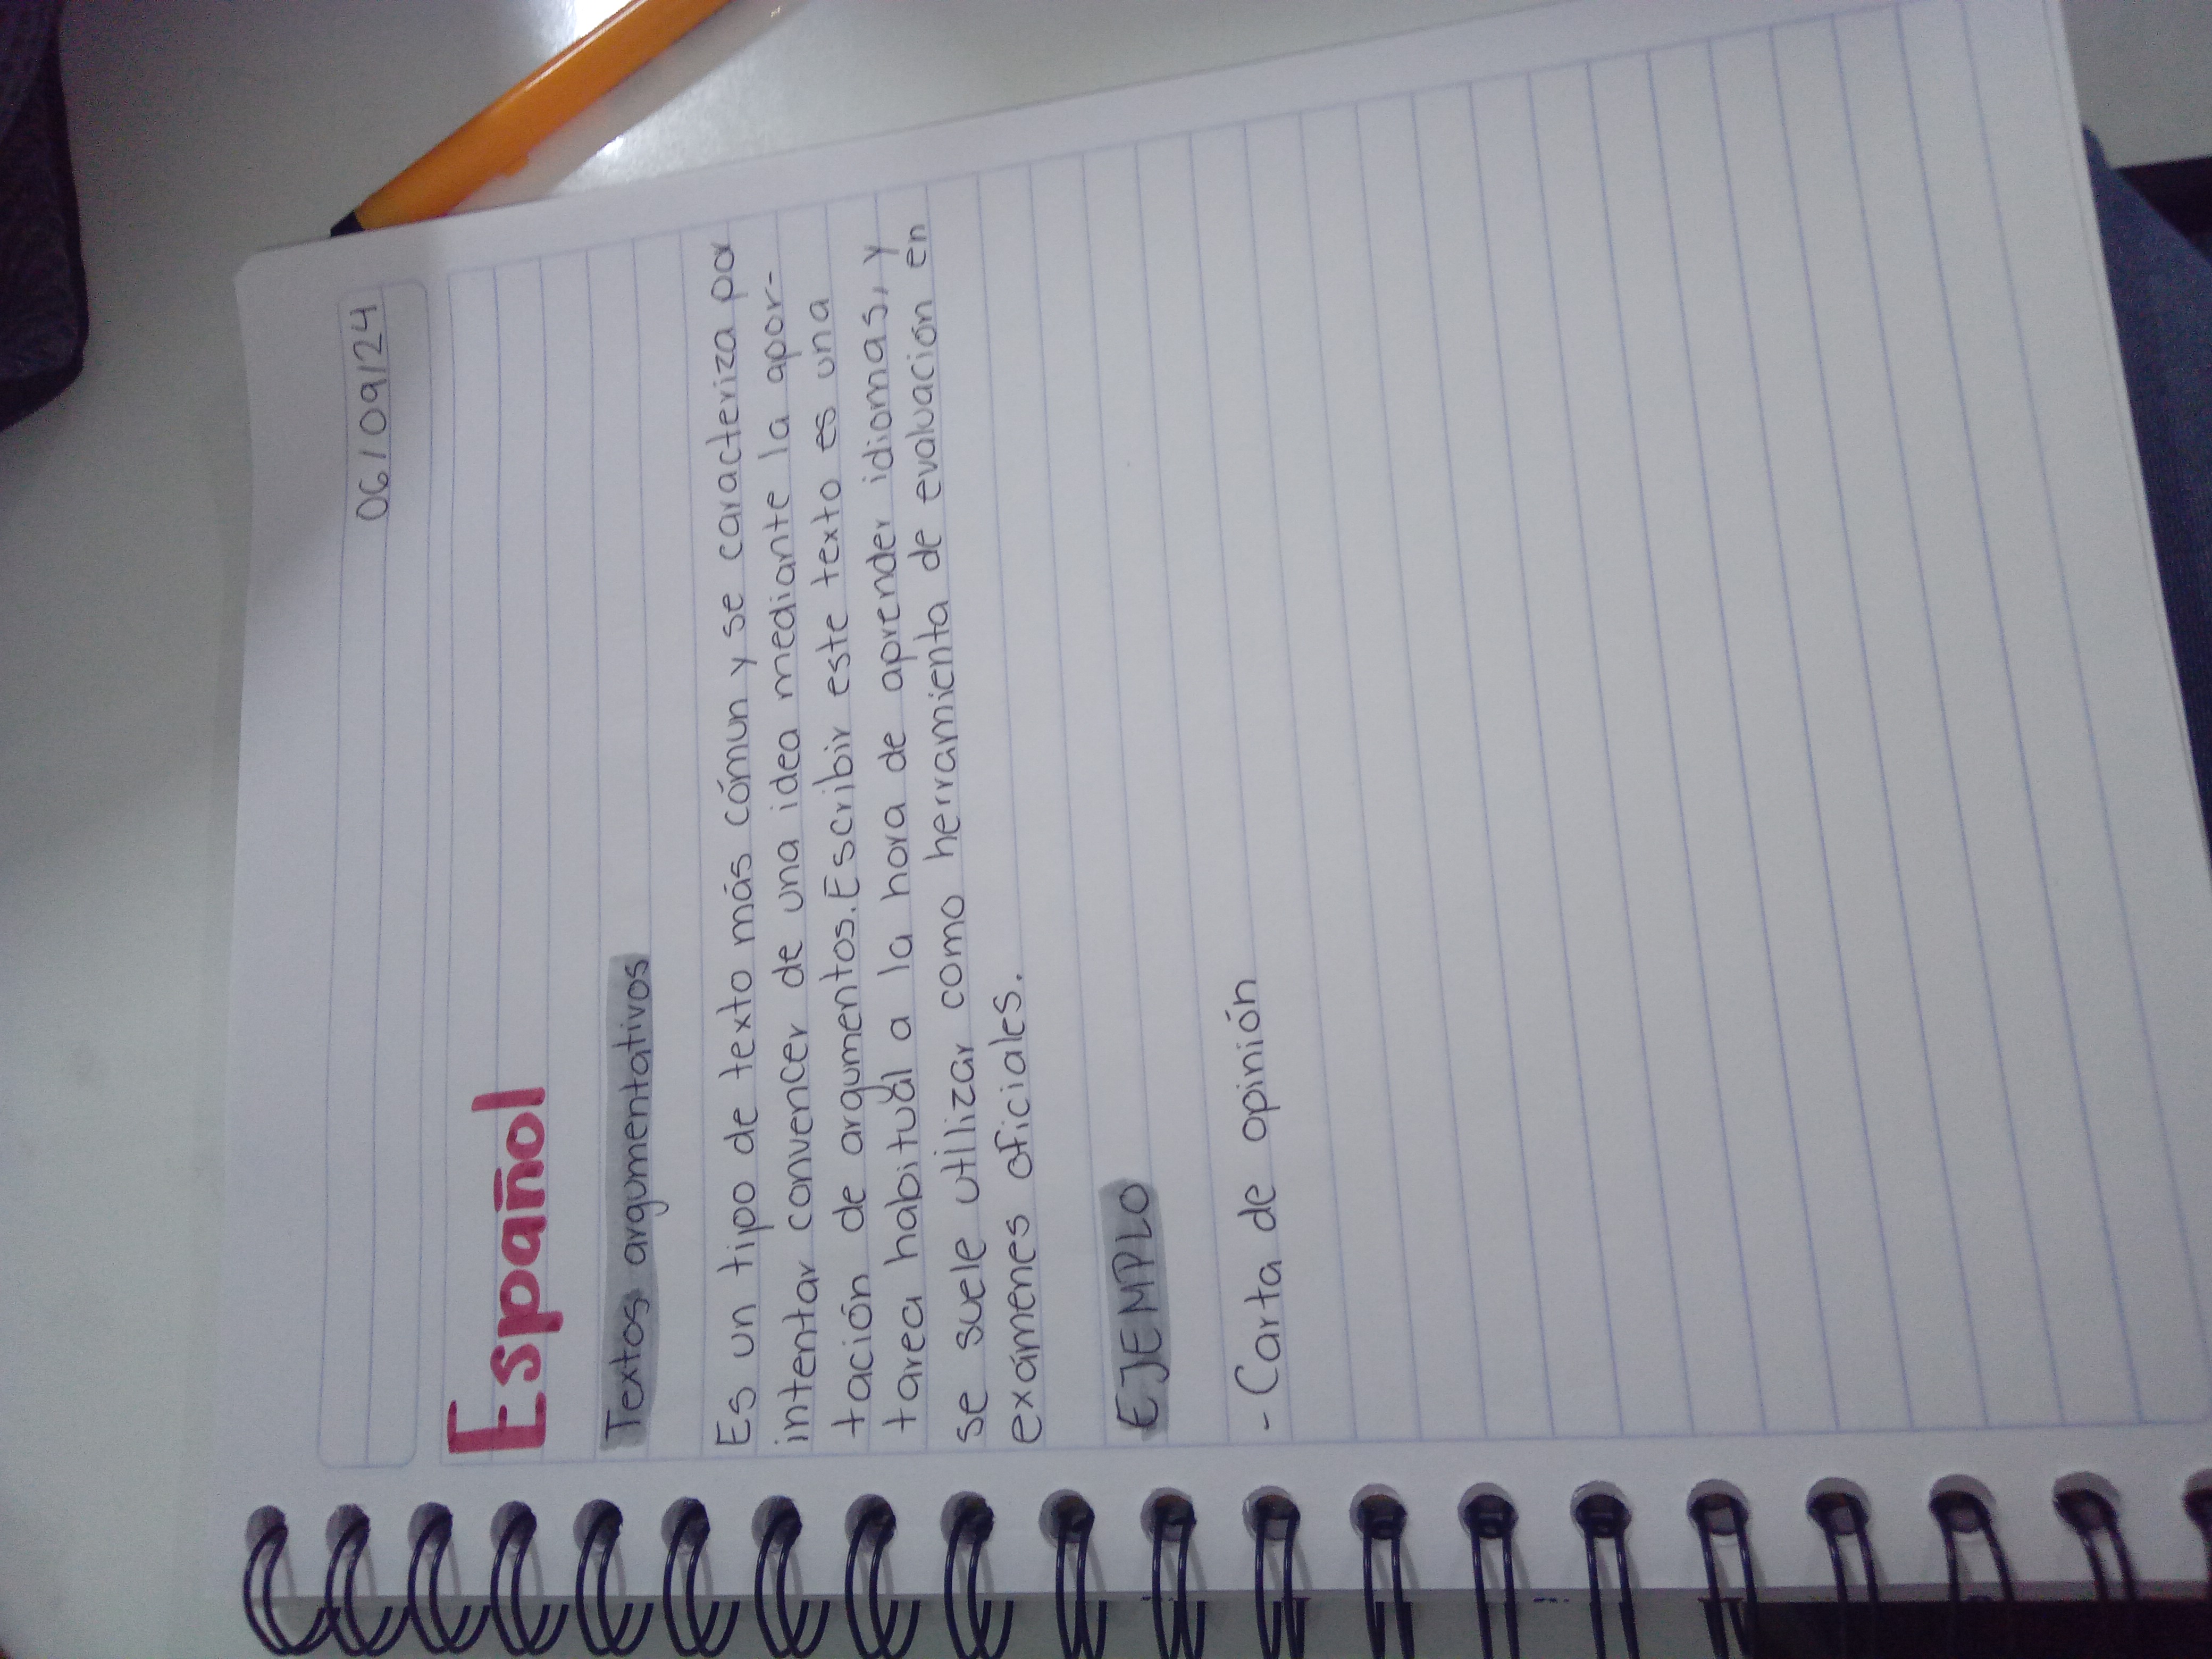 06/09/24
Español
Textos argumentativos
Es un tipo de texto más cómun y se caracteriza por
intentar convencer de una idea mediante la apor-
tación de argumentos. Escribir este texto es una
tarea habitual a la hora de aprender idiomas, y
se suele utilizar como herramienta de evaluación en
exámenes oficiales.
EJEMPLO
- Carta de opinión